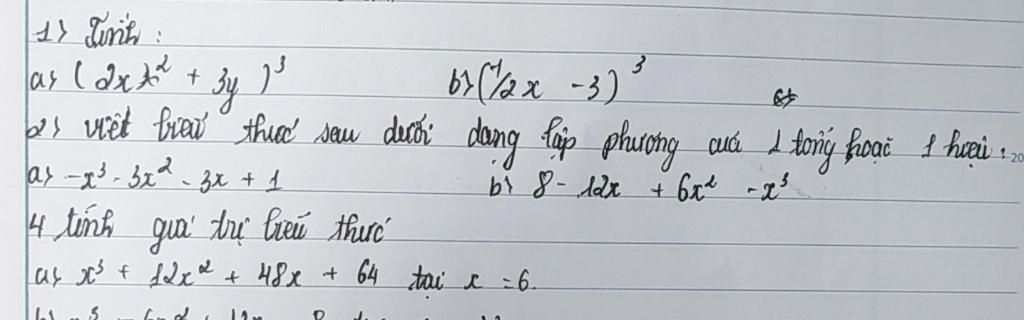 1) Tính :
a) (2x² + 3y)³ b) (1/2x - 3)³
2) viết biểu thức sau dưới dạng lập phương của 1 tổng hoặc 1 hiệu :
a) -x³ - 3x² - 3x + 1 b) 8 - 12x + 6x² - x³
4 tính giá trị biểu thức
a) x³ + 12x² + 48x + 64 tại x = 6.